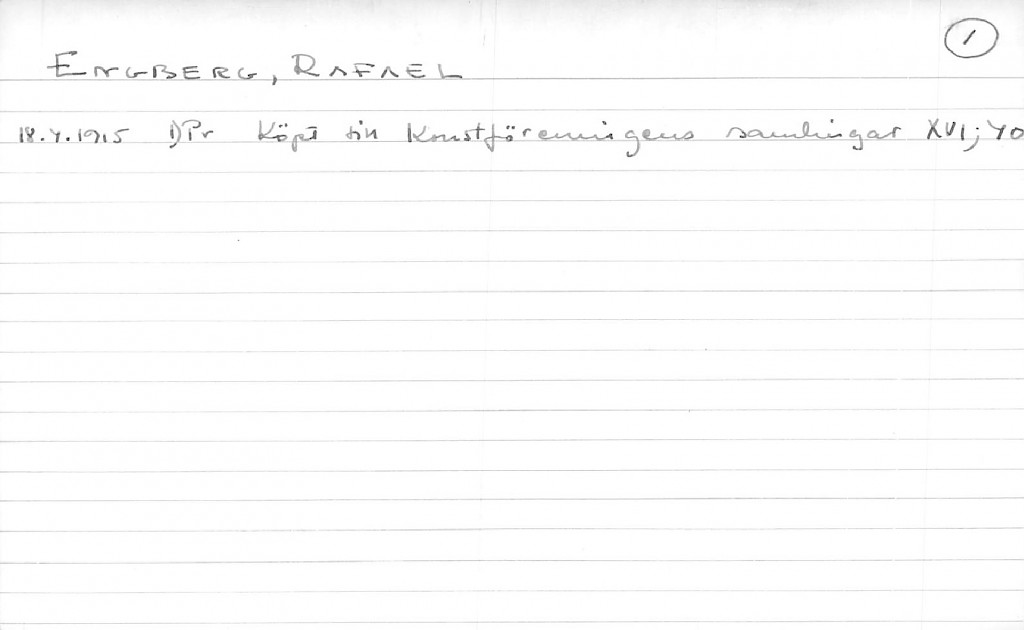 1
ENGBERG, RAFAEL
18.4.1915 DPr Köpt till Konstföreningens samlingar XVI; 40